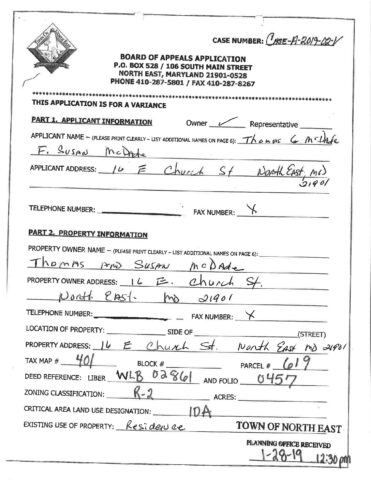 CASE NUMBER: Case-A-2019-02-V
BOARD OF APPEALS APPLICATION
P.O. BOX 528 / 106 SOUTH MAIN STREET
NORTH EAST, MARYLAND 21901-0528
PHONE 410-287-5801 / FAX 410-287-8267
THIS APPLICATION IS FOR A VARIANCE
PART 1. APPLICANT INFORMATION Owner ✓ Representative
APPLICANT NAME – (PLEASE PRINT CLEARLY – LIST ADDITIONAL NAMES ON PAGE 6): Thomas G McDade
E. Susan McDade
APPLICANT ADDRESS: 16 E Church St North East, MD
21901
TELEPHONE NUMBER: FAX NUMBER: X
PART 2. PROPERTY INFORMATION
PROPERTY OWNER NAME – (PLEASE PRINT CLEARLY – LIST ADDITIONAL NAMES ON PAGE 6):
Thomas and Susan McDade
PROPERTY OWNER ADDRESS: 16 E. Church St.
North East. MD 21901
TELEPHONE NUMBER: FAX NUMBER: X
LOCATION OF PROPERTY: SIDE OF (STREET)
PROPERTY ADDRESS: 16 E Church St. North East MD 21901
TAX MAP # 401 BLOCK # PARCEL # 619
DEED REFERENCE: LIBER WLB 02861 AND FOLIO 0457
ZONING CLASSIFICATION: R-2 ACRES:
CRITICAL AREA LAND USE DESIGNATION: IDA
EXISTING USE OF PROPERTY: Residence TOWN OF NORTH EAST
PLANNING OFFICE RECEIVED
1-28-19 12:30pm